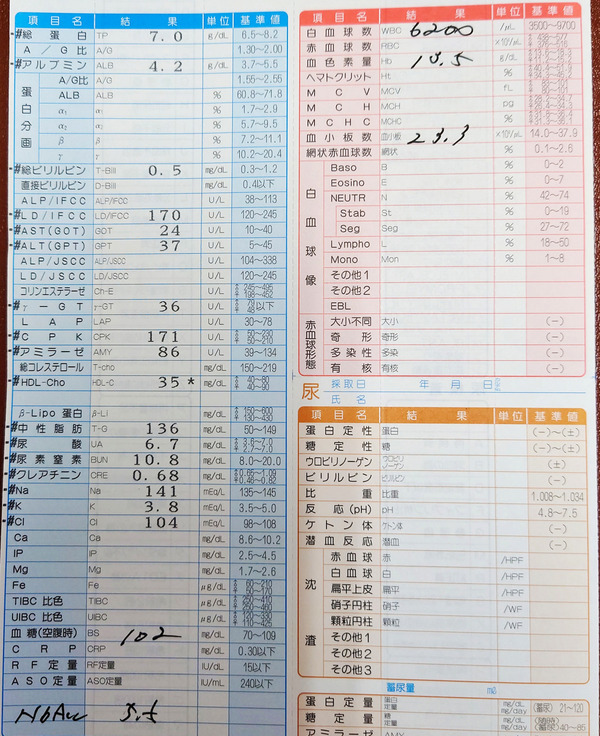 項目名 結果 単位 基準値
#総蛋白 TP 7.0 g/dL 6.5~8.2
A／G比 A/G 1.30~2.00
#アルブミン ALB 4.2 g/dL 3.7~5.5
蛋白分画
A/G比 A/G 1.55~2.55
ALB ALB % 60.8~71.8
α₁ α₁ % 1.7~2.9
α₂ α₂ % 5.7~9.5
β β % 7.2~11.1
γ γ % 10.2~20.4
#総ビリルビン T-Bill 0.5 mg/dL 0.3~1.2
直接ビリルビン D-Bill mg/dL 0.4以下
ALP/IFCC ALP/IFCC U/L 38~113
#LD/IFCC LD/IFCC 170 U/L 120~245
#AST(GOT) GOT 24 U/L 10~40
#ALT(GPT) GPT 37 U/L 5~45
ALP/JSCC ALP/JSCC U/L 104~338
LD/JSCC LD/JSCC U/L 120~245
コリンエステラーゼ Ch-E U/L 245~495 198~452
#γ－GT γ-GT 36 U/L
LAP LAP U/L 30~78
#CPK CPK 171 U/L 50~230 50~210
#アミラーゼ AMY 86 U/L 39~134
総コレステロール T-cho mg/dL 150~219
#HDL-Cho HDL-C 35* mg/dL 40~80 40~90
β-Lipo蛋白 β-Li mg/dL 150~600 130~430
#中性脂肪 T-G 136 mg/dL 50~149
#尿酸 UA 6.7 mg/dL 3.6~7.0 2.7~7.0
#尿素窒素 BUN 10.8 mg/dL 8.0~20.0
#クレアチニン CRE 0.68 mg/dL 0.65~1.09 0.46~0.82
#Na Na 141 mEq/L 135~145
#K K 3.8 mEq/L 3.5~5.0
#Cl Cl 104 mEq/L 98~108
Ca Ca mg/dL 8.6~10.2
IP IP mg/dL 2.5~4.5
Mg Mg mg/dL 1.7~2.6
Fe Fe μg/dL 60~210 50~170
TIBC比色 TIBC μg/dL 250~410 250~460
UIBC比色 UIBC μg/dL 110~425
血糖(空腹時) BS 102 mg/dL 70~109
CRP CRP mg/dL 0.30以下
RF定量 RF定量 IU/dL 15以下
ASO定量 ASO定量 IU/mL 240以下
HbA1c 5.5
項目名 結果 単位 基準値
白血球数 WBC 6200 /μL 3500~9700
赤血球数 RBC ×10⁴/μL
血色素量 Hb g/dL
ヘマトクリット Ht %
MCV MCV fL
MCH MCH pg
MCHC MCHC %
血小板数 血小板 23.3 ×10⁴/μL 14.0~37.9
網状赤血球数 網状 % 0.1~2.6
白血球像
Baso B % 0~2
Eosino E % 0~7
NEUTR N % 42~74
Stab St % 0~19
Seg Seg % 27~72
Lympho L % 18~50
Mono Mon % 1~8
その他1
その他2
EBL
赤血球形態
大小不同 大小 (－)
奇形 奇形 (－)
多染性 多染 (－)
有核 有核 (－)
尿 採取日 年 月 日
氏名
項目名 結果 単位 基準値
蛋白定性 蛋白 (－)~(±)
糖定性 糖 (－)~(±)
ウロビリノーゲン ウロビリノーゲン (±)
ビリルビン ビリルビン (－)
比重 比重 1.008~1.034
反応(pH) pH 4.8~7.5
ケトン体 ケトン体 (－)
潜血反応 潜血 (－)
沈渣
赤血球 赤 /HPF
白血球 白 /HPF
扁平上皮 扁平 /HPF
硝子円柱 硝子 /WF
顆粒円柱 顆粒 /WF
その他1
その他2
その他3
蓄尿量 mℓ
蛋白定量 蛋白定量 mg/dL mg/day (蓄尿)21~120
糖定量 糖定量 mg/dL mg/day (随時) (蓄尿)40~85
アミラーゼ AMY